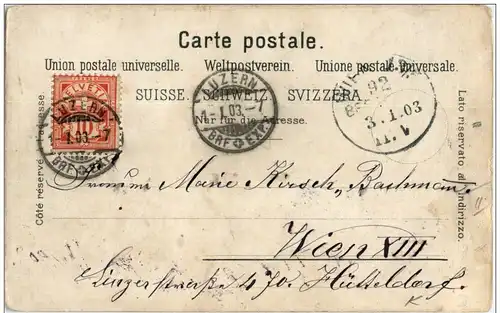 Carte postale.
Union postale universelle. Weltpostverein. Unione postale universale.
SUISSE. SCHWEIZ SVIZZERA
Nur für die Adresse.
Côté réservé à l'adresse.
Lato riservato all'indirizzo.
HELVETIA
10
LUZERN
1.03.-7
BRF EXP.
LUZERN
1.03.-7
BRF EXP.
92
3.1.03
11.V
Marie Kirsch, Bachmann
Wien XIII
Linzerstraße 470. Hütteldorf.